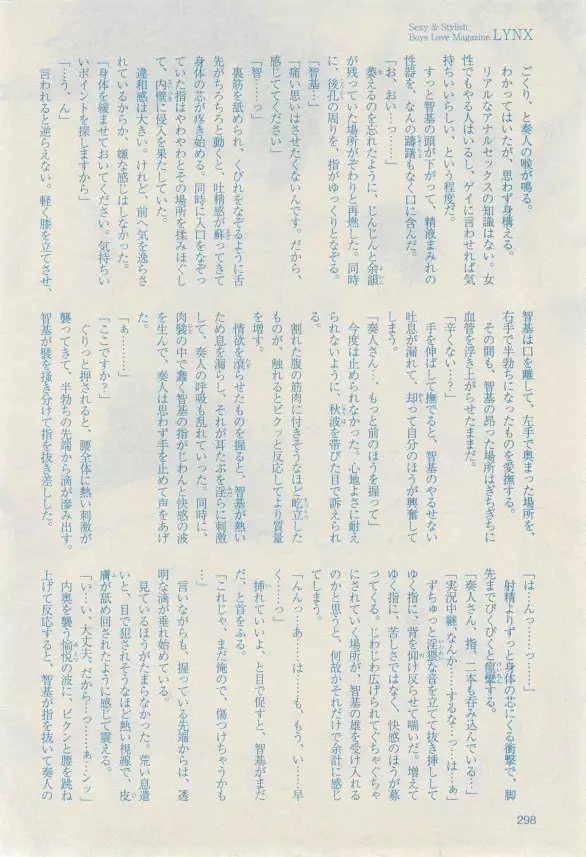 Sexy & Stylish
Boys Love Magazine LYNX
ごくり、と奏人の喉が鳴る。
わかってはいたが、思わず身構える。
リアルなアナルセックスの知識はない。女
性でもやる人はいるし、ゲイに言わせれば気
持ちいいらしい、という程度だ。
すっと智基の頭が下がって、精液まみれの
性器を、なんの躊躇もなく口に含んだ。
「お、おい…っ……」
萎えるのを忘れたように、じんじんと余韻
が残っていた場所がぞわりと再燃した。同時
に、後孔の周りを、指がゆっくりとなぞる。
「智基…」
「痛い思いはさせたくないんです。だから、
感じててください」
「智……っ」
裏筋を舐められ、くびれをなぞるように舌
先がちろちろと動くと、吐精感が蘇ってきて
身体の芯が疼き始める。同時に入口をなぞっ
ていた指はやわやわとその場所を揉みほぐし
て、内壁に侵入を果たしていた。
違和感は大きい。けれど、前へ気を逸らさ
れているからか、嫌な感じはしなかった。
「身体を緩ませておいてください。気持ちい
いポイントを探しますから」
「…う、ん」
言われると逆らえない。軽く膝を立てさせ、
智基は口を離して、左手で奥まった場所を、
右手で半勃ちになったものを愛撫する。
その間も、智基の昂った場所はぎちぎちに
血管を浮き上がらせたままだ。
「辛くない…？」
手を伸ばして撫でると、智基のやるせない
吐息が漏れて、却って自分のほうが興奮して
しまう。
「奏人さん…、もっと前のほうを握って」
今度は止められなかった。心地よさに耐え
られないように、秋波を帯びた目で訴えられ
る。
割れた腹の筋肉に付きそうなほど屹立した
ものが、触れるとビクッと反応してより質量
を増す。
情欲を滾らせたものを握ると、智基が熱い
ため息を漏らし、それが耳たぶを淫らに刺激
して、奏人の呼吸も乱れていった。同時に、
肉襞の中で蠢く智基の指がじわんと快感の波
を生んで、奏人は思わず手を止めて声をあげ
た。
「ぁ………」
「ここですか？」
ぐりっと押されると、腰全体に熱い刺激が
襲ってきて、半勃ちの先端から滴が滲み出す。
智基が襞を掻き分けて指を抜き差しした。
「は…んっ……っ……」
射精よりずっと身体の芯にくる衝撃で、脚
先までぴくぴくと痙攣する。
「奏人さん、指、二本も呑み込んでいる…」
「実況中継、なんか……するな…っ…は…ぁ」
ずちゅっと淫猥な音を立てて抜き挿しして
ゆく指に、背を仰け反らせて喘いだ。増えて
ゆく指に、苦しさではなく、快感のほうが募
ってくる。じわじわ広げられてぐちゃぐちゃ
にされていく場所が、智基の雄を受け入れる
のかと思うと、何故かそれだけで余計に感じ
てしまう。
「んんっ…あ……は……も、もう、い……早
く……っ」
挿れていいよ、と目で促すと、智基がまだ
だ、と首をふる。
「これじゃ、まだ俺ので、傷つけちゃうかも
…」
言いながらも、握っている先端からは、透
明な滴が垂れ始めている。
見ているほうがたまらなかった。荒い息遣
いと、目で犯されそうなほど熱い視線で、皮
膚が舐め回されたように感じて震える。
「い…い…大丈夫、だから…っ……ぁ…シッ」
内奥を襲う愉悦の波に、ビクンと腰を跳ね
上げて反応すると、智基が指を抜いて奏人の
298